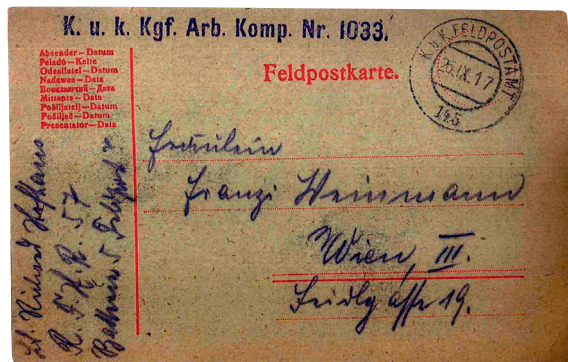 K. u. k. Kgf. Arb. Komp. Nr. 1033.
Absender—Datum
Feladó—Kelte
Odesílatel—Datum
Nadawca—Data
Feldpostkarte.
Mittente—Data
Pošiljatelj—Datum
Pošiljač—Datum
Presentator—Data
K.u.K. FELDPOSTAMT
25.IX.17
145
Fräulein
Franzi Weinmann
Wien, III.
Seidlgasse 19.
Lt. Richard
R. F. K. R. 57
5 Feldpost